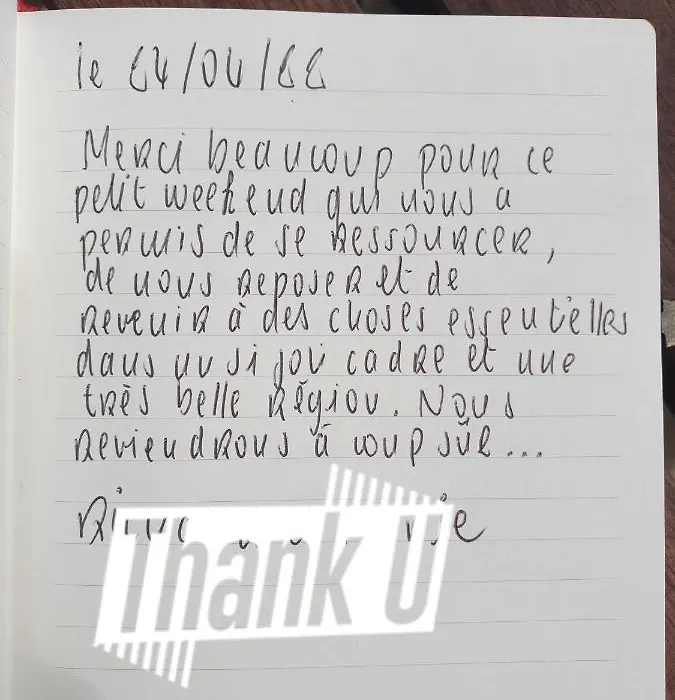 le 24/04/22
Merci beaucoup pour ce
petit weekend qui nous a
permis de se ressourcer,
de nous reposer et de
revenir à des choses essentielles
dans un si joli cadre et une
très belle région. Nous
reviendrons à coup sûr...
Thank U